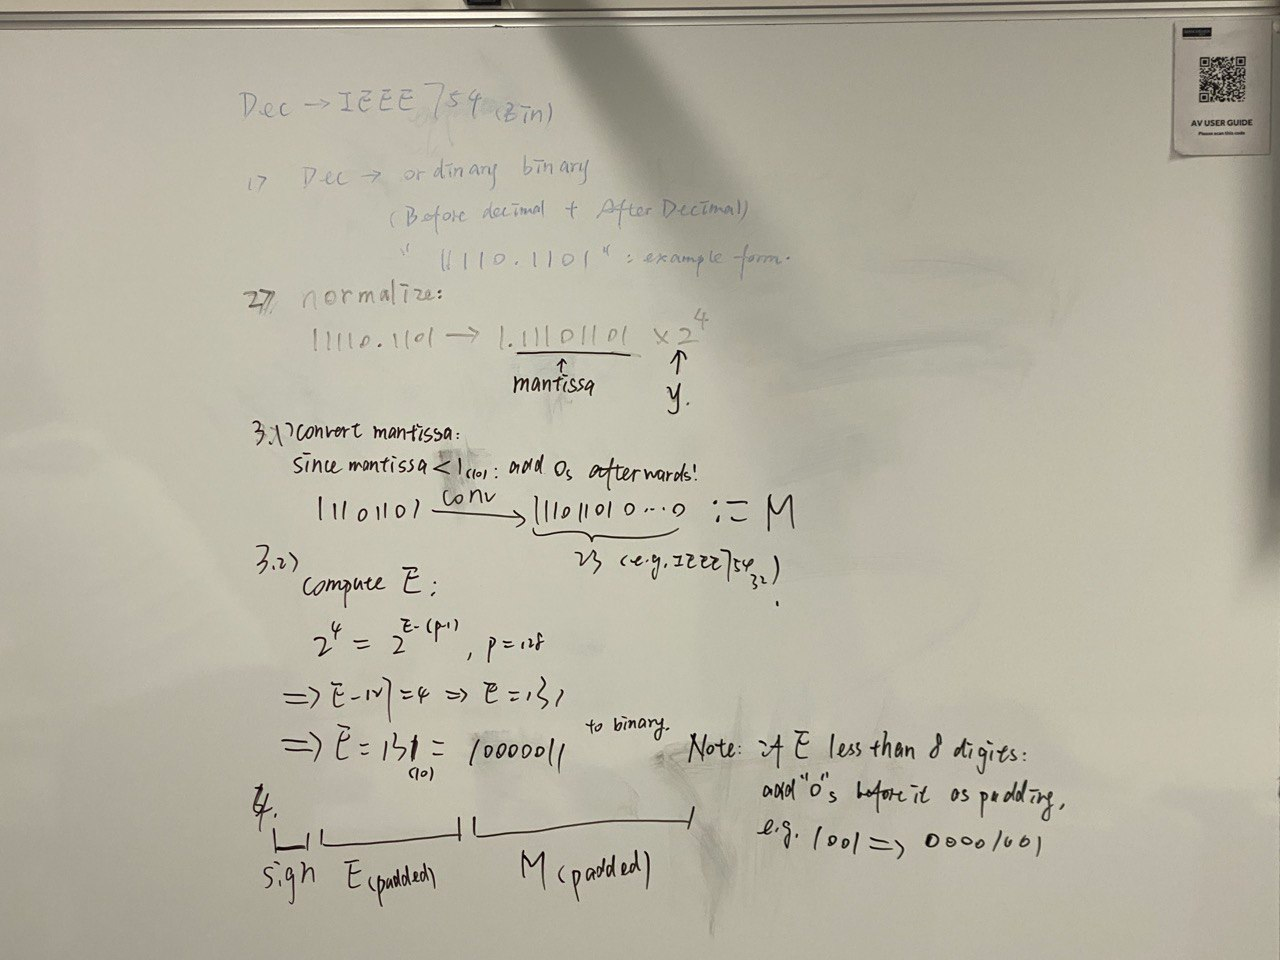 Dec → IEEE 754 (Bin)
1) Dec → ordinary binary
(Before decimal + After Decimal)
"11110.1101": example form.
2) normalize:
11110.1101 → 1.11101101 × 2^4
↑
mantissa
↑
y.
3.1) convert mantissa:
since mantissa < 1(10): add 0s afterwards!
11101101 conv → 11101101 0...0 := M
23 (e.g. IEEE754 32).
3.2)
compute E:
2^4 = 2^E-(p-1), p=128
=> E-127=4 => E=131
=> E=131(10) = 10000011 to binary.
Note: if E less than 8 digits:
add "0"s before it as padding,
e.g. 1001 => 00001001
4.
sign E(padded) M(padded)
AV USER GUIDE
Please scan this code